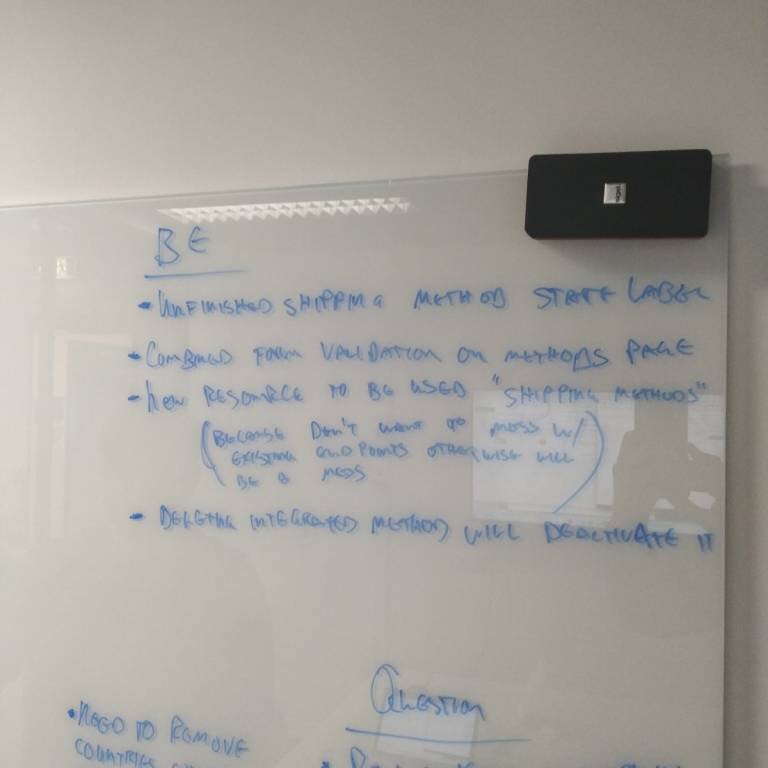 BE
- UNFINISHED SHIPPING METHOD STATE LABEL
- COMBINED FORM VALIDATION ON METHODS PAGE
- NEW RESOURCE TO BE USED "SHIPPING METHODS"
(BECAUSE DON'T WANT TO MESS W/
EXISTING ENDPOINTS OTHERWISE WILL
BE A MESS)
- DELETING INTEGRATED METHOD WILL DEACTIVATE IT
QUESTION
• NEED TO REMOVE
COUNTRIES